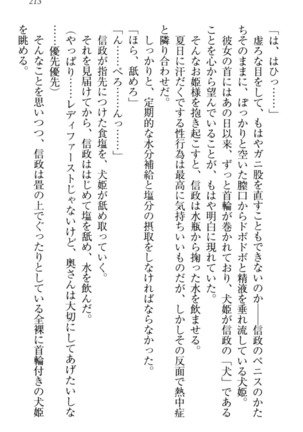 213
「は、はひっ……」
虚ろな目をして、もはやガニ股を直すこともできないのか――信政のペニスのかた
ちそのままに、ぽっかりと空いた膣口からドボドボと精液を垂れ流している犬姫。
彼女の首にはあの日以来、ずっと首輪が巻かれており、犬姫が信政の「犬」である
ことを心から望んでいることが、もはや明白に現れていた。
そんなお姫様を抱き起こすと、信政は水瓶から掬った水を飲ませる。
夏日に汗だくでする性行為は最高に気持ちいいものだが、しかしその反面で熱中症
と隣り合わせだ。
しっかりと、定期的な水分補給と塩分の摂取をしなければならなかった。
「ほら、舐めろ」
「ん……ぺろ……んっ……」
信政が指先につけた食塩を、犬姫が舐め取っていく。
それを見届けてから、信政ははじめて塩を舐め、水を飲んだ。
(やっぱり……レディファーストじゃないけど、奥さんは大切にしてあげたいしな
……優先優先)
そんなことを思いつつ、信政は畳の上でぐったりとしている全裸に首輪付きの犬姫
を眺める。